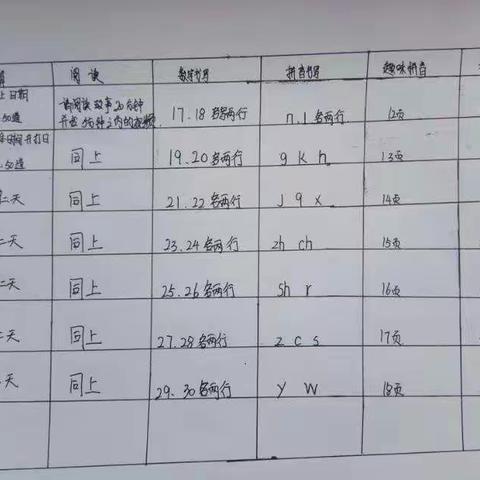 阅读 数字书写 拼音书写 趣味拼音
上日期
知道
请阅读故事20分钟
并发 视频
17.18 各写两行 n.l 各两行 12页
知道
同上 19.20 各两行 g k h 13页
二天 同上 21.22 各两行 j q x 14页
二天 同上 23.24 各两行 zh ch 15页
二天 同上 25.26 各两行 sh r 16页
二天 同上 27.28 各两行 z c s 17页
天 同上 29.30 各两行 y w 18页